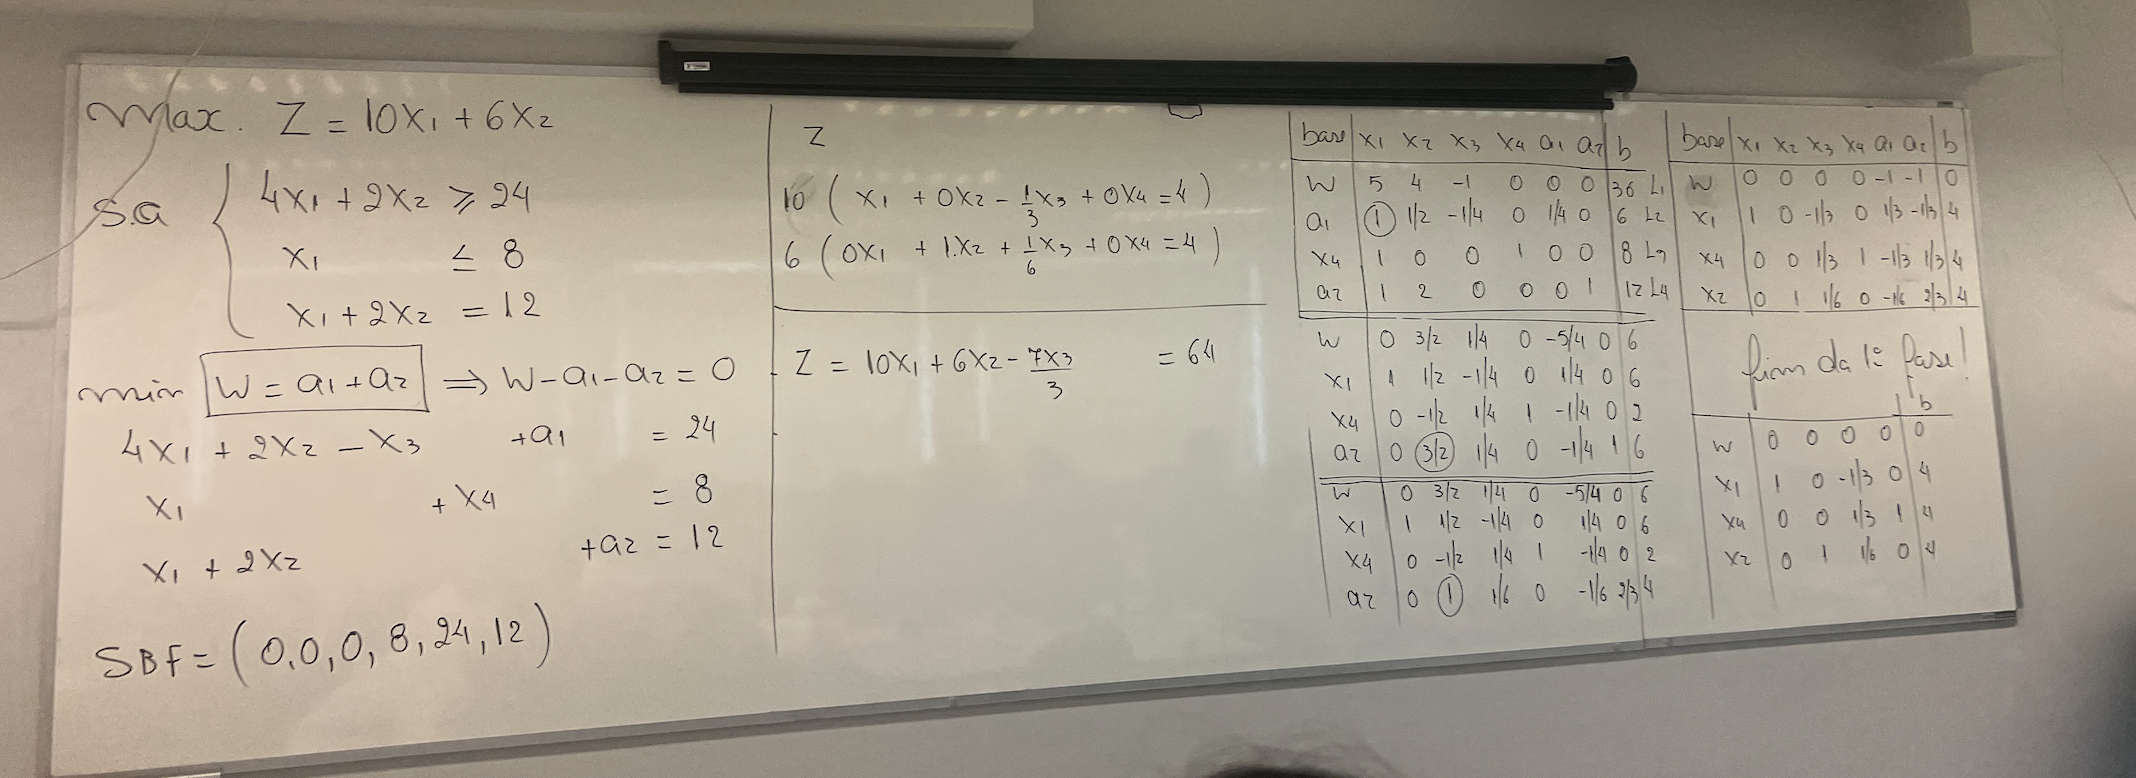 Max. Z = 10x1 + 6x2
S.a
4x1 + 2x2 ≥ 24
x1 ≤ 8
x1 + 2x2 = 12
min W = a1 + a2 ⇒ W - a1 - a2 = 0
4x1 + 2x2 - x3 + a1 = 24
x1 + x4 = 8
x1 + 2x2 + a2 = 12
SBF = (0,0,0,8,24,12)
Z
10 ( x1 + 0x2 - 1/3 x3 + 0x4 = 4 )
6 ( 0x1 + 1.x2 + 1/6 x3 + 0x4 = 4 )
Z = 10x1 + 6x2 - 7x3/3 = 64
base x1 x2 x3 x4 a1 a2 b
W 5 4 -1 0 0 0 36 L1
a1 1 1/2 -1/4 0 1/4 0 6 L2
x4 1 0 0 1 0 0 8 L3
a2 1 2 0 0 0 1 12 L4
W 0 3/2 1/4 0 -5/4 0 6
x1 1 1/2 -1/4 0 1/4 0 6
x4 0 -1/2 1/4 1 -1/4 0 2
a2 0 3/2 1/4 0 -1/4 1 6
W 0 3/2 1/4 0 -5/4 0 6
x1 1 1/2 -1/4 0 1/4 0 6
x4 0 -1/2 1/4 1 -1/4 0 2
a2 0 1 1/6 0 -1/6 2/3 4
base x1 x2 x3 x4 a1 a2 b
W 0 0 0 0 -1 -1 0
x1 1 0 -1/3 0 1/3 -1/3 4
x4 0 0 1/3 1 -1/3 1/3 4
x2 0 1 1/6 0 -1/6 2/3 4
fim da 1ª fase!
b
W 0 0 0 0 0
x1 1 0 -1/3 0 4
x4 0 0 1/3 1 4
x2 0 1 1/6 0 4